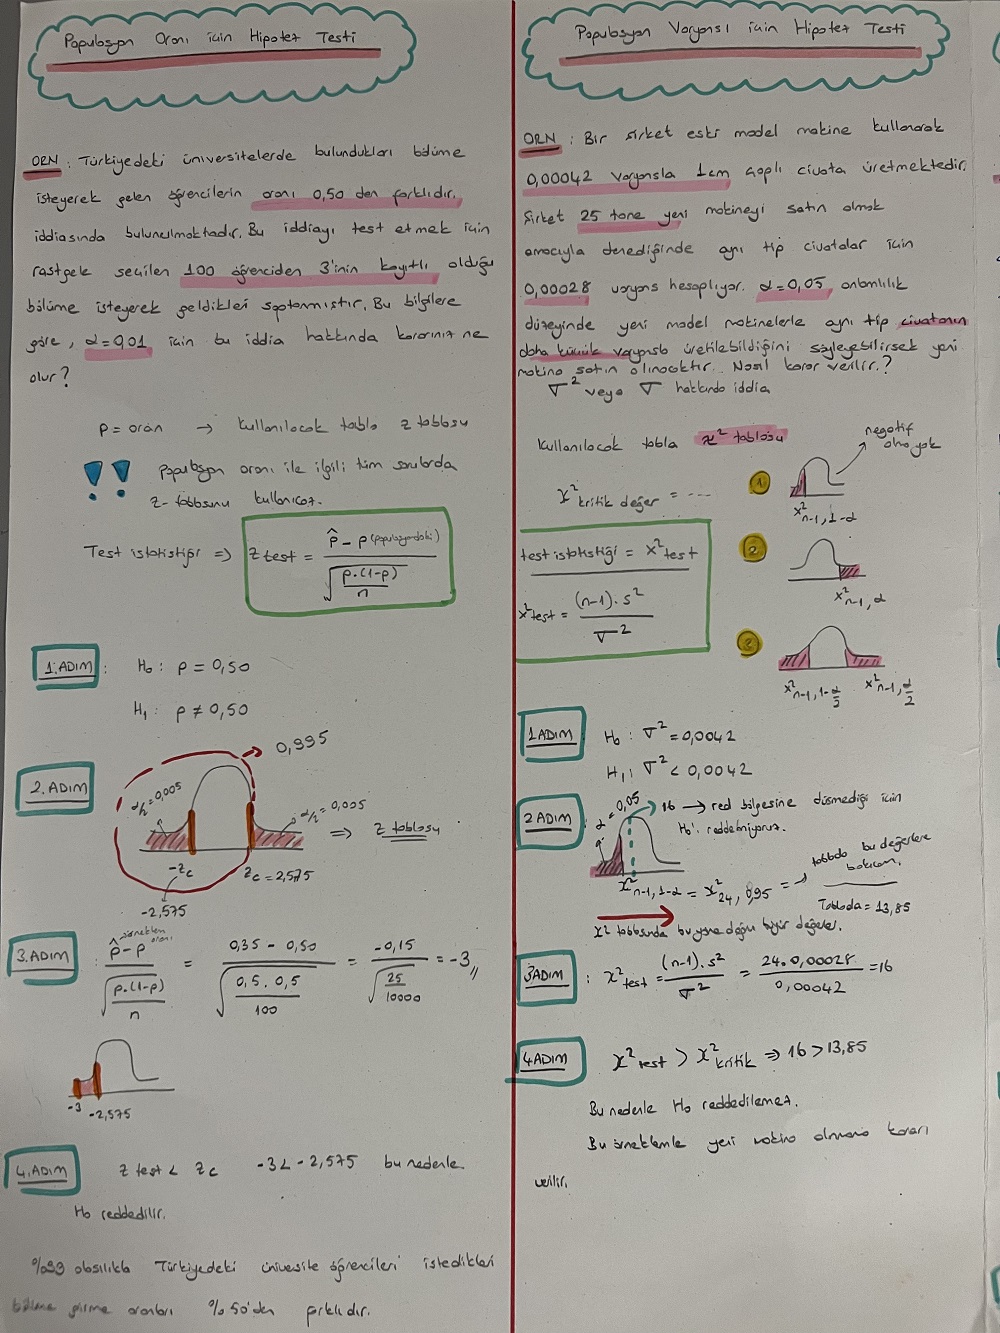 Populasyon Oranı için Hipotez Testi
ÖRN : Türkiyedeki üniversitelerde bulundukları bölüme
isteyerek gelen öğrencilerin oranı 0,50 den farklıdır.
iddiasında bulunulmaktadır. Bu iddiayı test etmek için
rastgele seçilen 100 öğrenciden 3'inin kayıtlı olduğu
bölüme isteyerek geldikleri saptanmıştır. Bu bilgilere
göre, α=0,01 için bu iddia hakkında kararınız ne
olur?
p = oran → kullanılacak tablo z tablosu
!! Populasyon oranı ile ilgili tüm sorularda
z-tablosunu kullanıcaz.
Test istatistiği => z test = p̂ - p (populasyondaki) / √(p.(1-p)/n)
1.ADIM : H₀ : p = 0,50
H₁ : p ≠ 0,50
0,995
2.ADIM
α/2 = 0,005
α/2 = 0,005
=> z tablosu
-zc
zc = 2,575
-2,575
3.ADIM : p̂ - p / √(p.(1-p)/n) = 0,35 - 0,50 / √(0,5 . 0,5/100) = -0,15 / √(25/10000) = -3,,
-3 -2,575
4.ADIM z test < zc -3 < -2,575 bu nedenle
H₀ reddedilir.
%99 olasılıkla Türkiyedeki üniversite öğrencileri istedikleri
bölüme girme oranları %50'den farklıdır.
Populasyon Varyansı için Hipotez Testi
ÖRN : Bir şirket eski model makine kullanarak
0,00042 varyansla 1cm çaplı civata üretmektedir.
Şirket 25 tane yeni makineyi satın almak
amacıyla denediğinde aynı tip civatalar için
0,00028 varyans hesaplıyor. α=0,05 anlamlılık
düzeyinde yeni model makinelerle aynı tip civatanın
daha küçük varyansla üretilebildiğini söyleyebilirsek yeni
makina satın alınacaktır. Nasıl karar verilir.?
σ² veya σ hakkında iddia
Kullanılacak tablo x² tablosu
negatif
olma yok
x² kritik değer = ....
1
x²n-1, 1-α
test istatistiği = x² test
2
x²n-1, α
x² test = (n-1) . s² / σ²
3
x²n-1, 1-α/2 x²n-1, α/2
1ADIM : H₀ : σ² = 0,0042
H₁ : σ² < 0,0042
2ADIM : α = 0,05 16 → red bölgesine düşmediği için
H₀'ı reddetmiyoruz.
x²n-1, 1-α = x²24, 0,95 = → tabloda bu değerlere
bakıcam.
Tabloda = 13,85
x² tablosunda bu yöne doğru büyür değerler.
3ADIM : x² test = (n-1) . s² / σ² = 24.0,00028 / 0,00042 = 16
4ADIM x² test > x² kritik => 16 > 13,85
Bu nedenle H₀ reddedilemez.
Bu örneklemle yeni makina alınmama kararı
verilir.